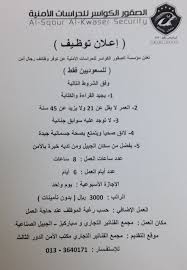 الصقور الكواسر للحراسات الأمنية
Al-Sqour Al-Kwaser Security
( إعلان توظيف )
تعلن مؤسسة الصقور الكواسر للحراسات الأمنية عن توفر وظائف رجال أمن
( للسعوديين فقط )
وفق الشروط التالية
1- يجيد القراءة والكتابة
2- العمر لا يقل عن 21 ولا يزيد عن 45 سنة
3- لا توجد عليه سوابق جنائية
4- لائق صحيا ويتمتع بصحة جسمانية جيدة
5- يفضل من سكان الجبيل ومن له خبره
ساعات العمل : 8 ساعات
عدد أيام العمل : 6 أيام
الإجازة الأسبوعية : يوم واحد
الراتب : 3000 ريال ( بدون تأمينات )
العمل الإضافي : حسب رغبة الموظف عند حاجة العمل
مكان العمل : مجمع الفناتير التجاري و مباركية - الجبيل الصناعية
موقع التقديم : مجمع الفناتير التجاري مكتب الأمن الدور الثالث
للإستفسار : 3640171 - 013